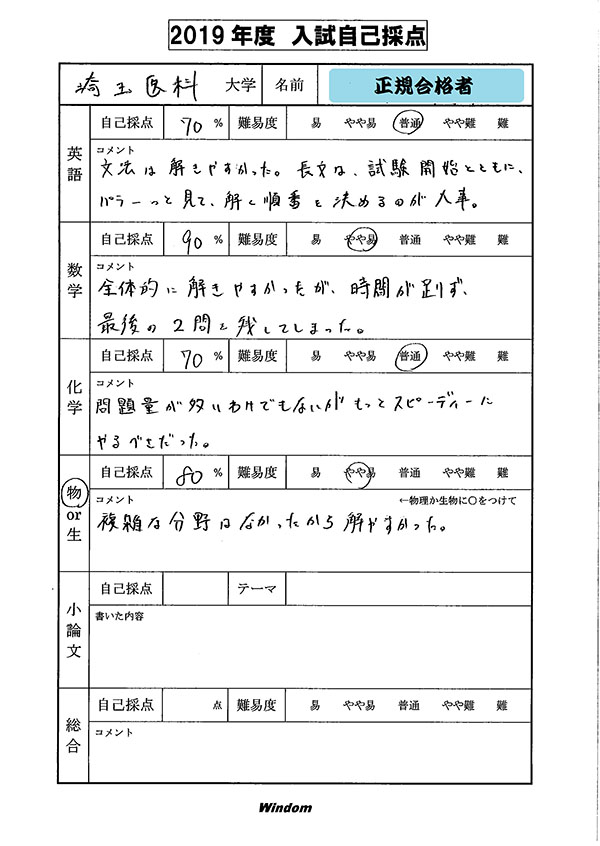 2019年度 入試自己採点
埼玉医科 大学 名前 正規合格者
英語 自己採点 70 % 難易度 易 やや易 普通 やや難 難
コメント
文法は解きやすかった。長文は、試験開始とともに、
パラーっと見て、解く順番を決めるのが大事。
数学 自己採点 90 % 難易度 易 やや易 普通 やや難 難
コメント
全体的に解きやすかったが、時間が足りず、
最後の2問を残してしまった。
化学 自己採点 70 % 難易度 易 やや易 普通 やや難 難
コメント
問題量が多いわけでもないがもっとスピーディーに
やるべきだった。
物or生 自己採点 80 % 難易度 易 やや易 普通 やや難 難
コメント ←物理か生物に○をつけて
複雑な分野はなかったから解やすかった。
小論文 自己採点 テーマ
書いた内容
総合 自己採点 点 難易度 易 やや易 普通 やや難 難
コメント
Windom